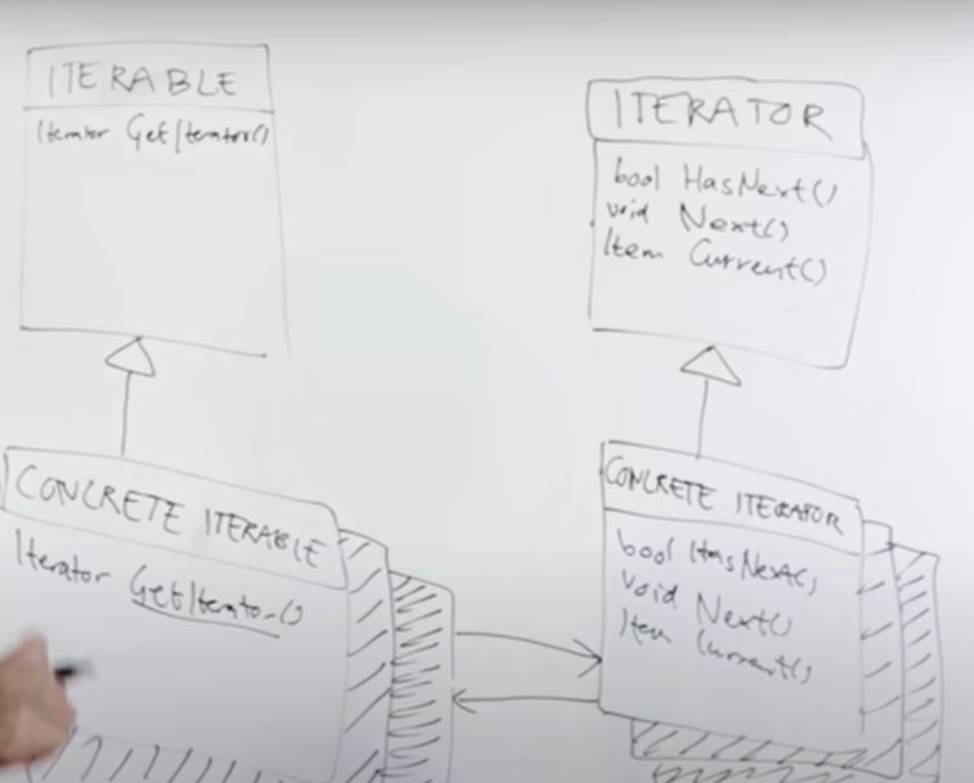 ITERABLE
Iterator GetIterator()
ITERATOR
bool HasNext()
void Next()
Item Current()
CONCRETE ITERABLE
Iterator GetIterator()
CONCRETE ITERATOR
bool HasNext()
void Next()
Item Current()